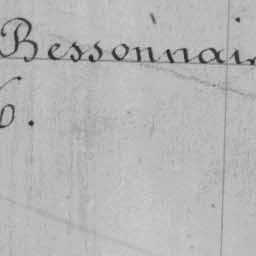 Bessonnai
6.